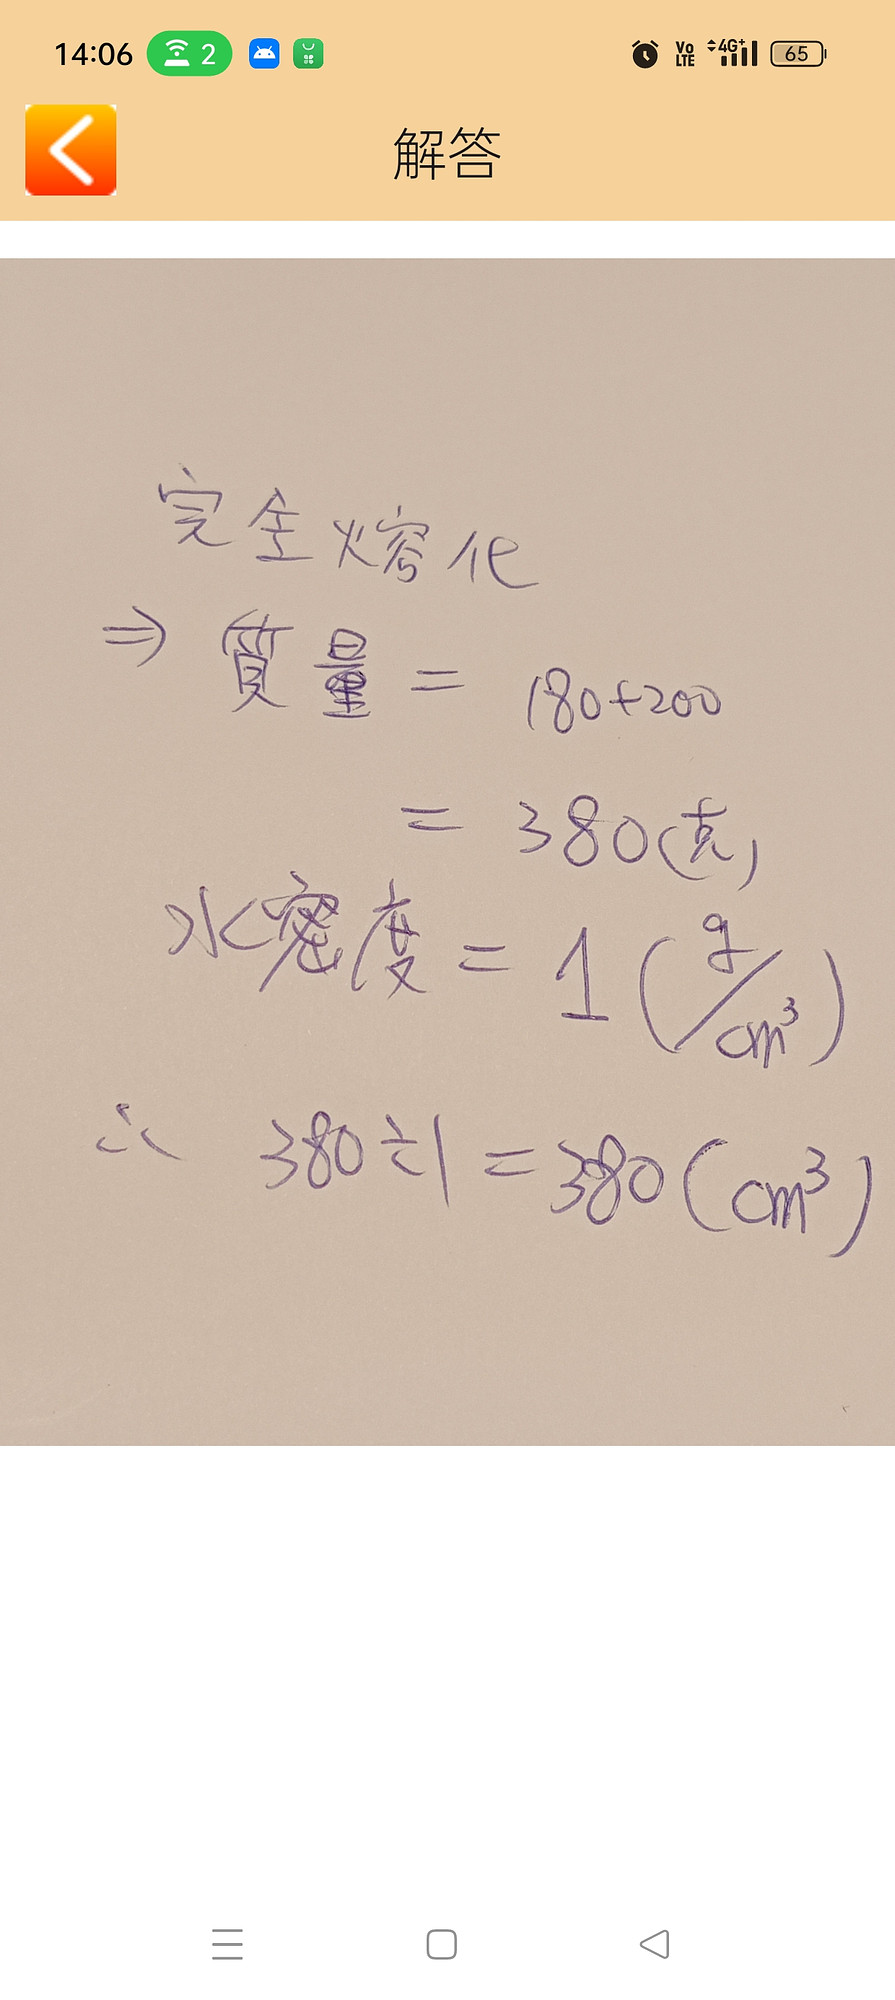 14:06 2 Vo LTE 4G+ 65
解答
完全熔化
⇒ 質量 = 180+200
= 380(克)
水密度 = 1 (g/cm³)
∴ 380÷1 = 380 (cm³)